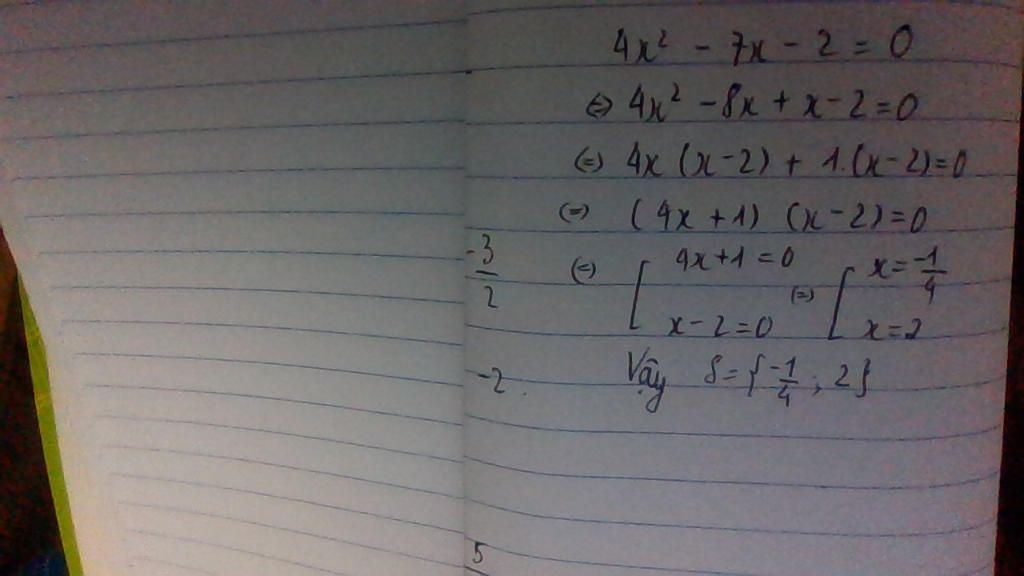 4x² - 7x - 2 = 0
(=) 4x² - 8x + x - 2 = 0
(=) 4x (x - 2) + 1.(x - 2) = 0
(=) (4x + 1) (x - 2) = 0
-3/2 (=) [ 4x + 1 = 0 (=) [ x = -1/4
x - 2 = 0 x = 2
-2 Vậy S = {-1/4 ; 2}
5